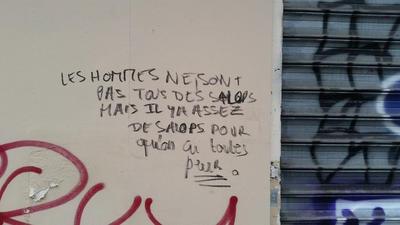 LES HOMMES NE SONT
PAS TOUS DES SALOPS
MAIS IL Y A ASSEZ
DE SALOPS POUR
qu'on ai toutes
peur.